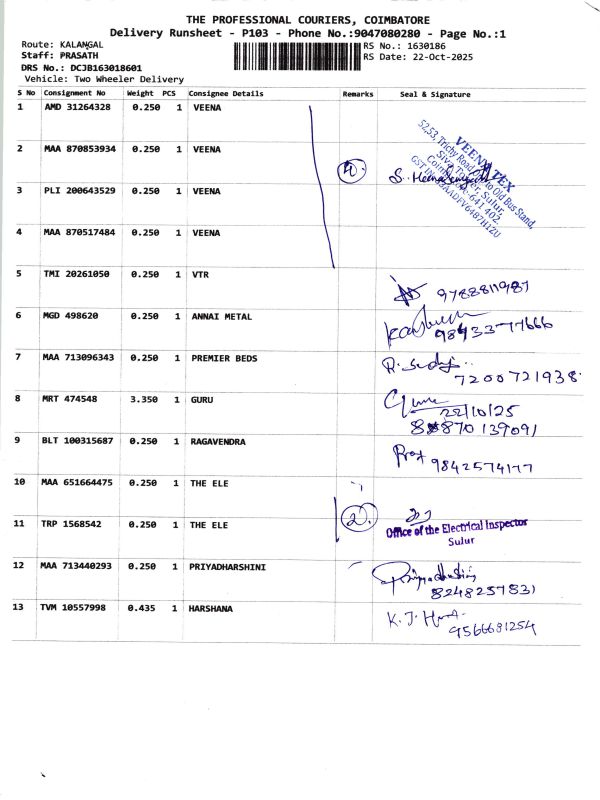 THE PROFESSIONAL COURIERS, COIMBATORE
Delivery Runsheet - P103 - Phone No.:9047080280 - Page No.:1
Route: KALANGAL
RS No.: 1630186
Staff: PRASATH
RS Date: 22-Oct-2025
DRS No.: DCJB163018601
Vehicle: Two Wheeler Delivery
S No Consignment No Weight PCS Consignee Details Remarks Seal & Signature
1 AMD 31264328 0.250 1 VEENA
2 MAA 870853934 0.250 1 VEENA
3 PLI 200643529 0.250 1 VEENA
4 MAA 870517484 0.250 1 VEENA
4.
VEENA TEX
52,53, Trichy Road, Old Bus Stand,
Sulur,
641 402.
5 TMI 20261050 0.250 1 VTR 9788811987
6 MGD 498620 0.250 1 ANNAI METAL 98433-77666
7 MAA 713096343 0.250 1 PREMIER BEDS
7200721938
8 MRT 474548 3.350 1 GURU
22/10/25
9 BLT 100315687 0.250 1 RAGAVENDRA
10 MAA 651664475 0.250 1 THE ELE
11 TRP 1568542 0.250 1 THE ELE 2.
Office of the Electrical Inspector
Sulur
12 MAA 713440293 0.250 1 PRIYADHARSHINI
8248257831
13 TVM 10557998 0.435 1 HARSHANA
9566681254